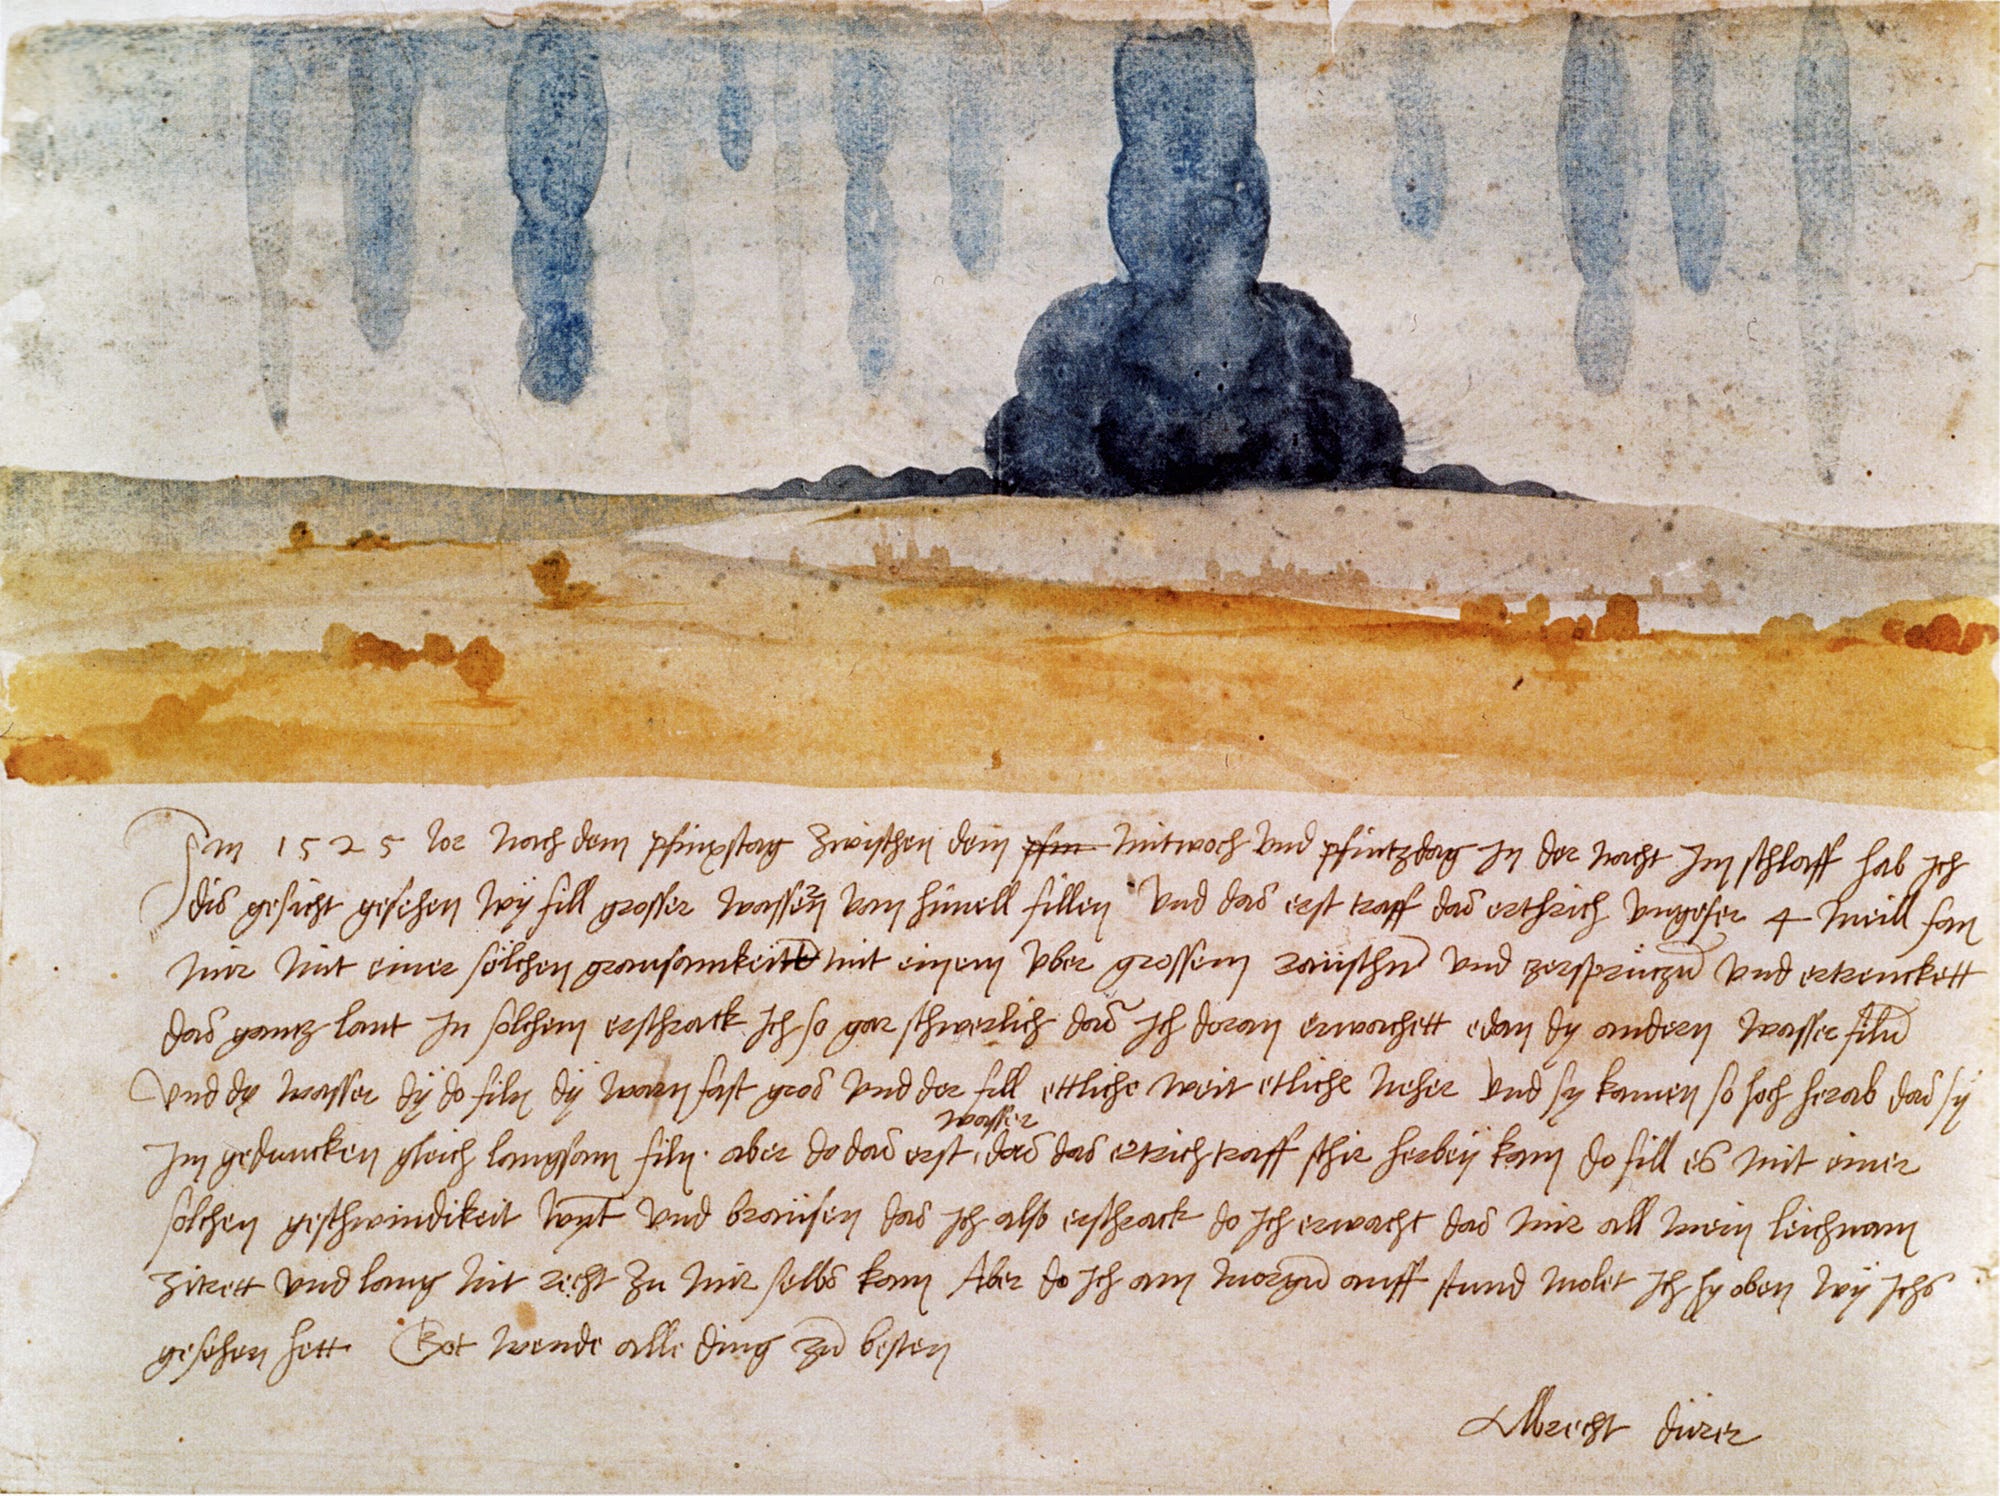 Im 1525 Jor nach dem pfinxstag zwischen dem pfin mitwoch und pfintzdag in der nacht im schlaff hab ich
dis gesicht gesehen wy fill grosser wassern vom himell fillen Und das erst traff das erthrich ungefer 4 meill fan
mir mit einer sölchen grausamkeitt mit einem uber grossem raüschn und zersprützn und ertrenckett
das gantz lant In sölchem erschrack ich so gar schwerlich das ich doran erwachett edan dy andern wasser filn
Und dy wasser dy do filn dy warn fast gros und der fill ettliche weit etliche neher und sy kamen so hoch herab das sy
im geduncken gleich langsam filn. aber do das erst wasser das das ertrich traff schir herbey kam do fill es mit einer
sölchen geschwindikeit wynt und braüsen das ich also erschrack do ich erwacht das mir all mein leichnam
zitrett und lang nit recht zu mir selbs kam Aber do ich am morgn auff stund molet ich hy oben wy ichs
gesehen hett. Got wende alle ding zu besten
Albrecht dürer